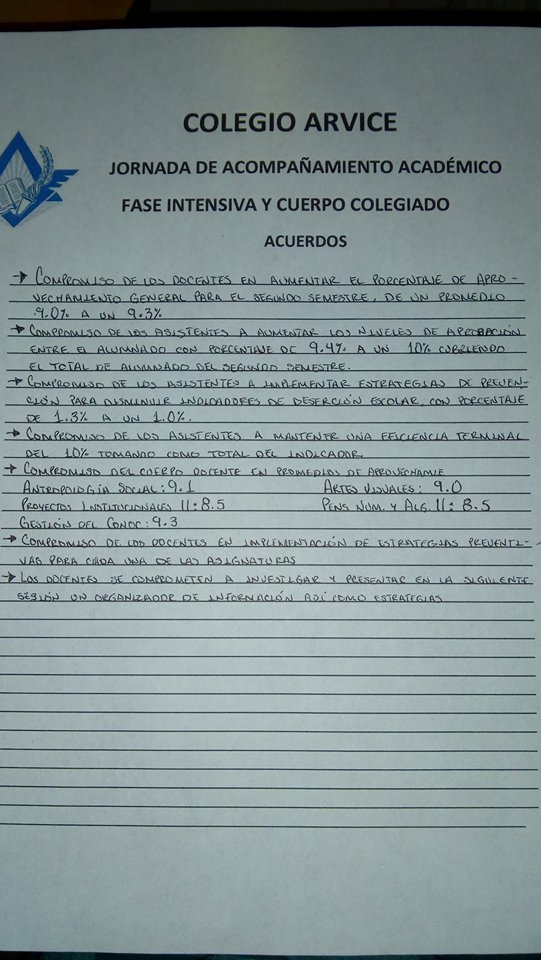 COLEGIO ARVICE
JORNADA DE ACOMPAÑAMIENTO ACADÉMICO
FASE INTENSIVA Y CUERPO COLEGIADO
ACUERDOS
→ COMPROMISO DE LOS DOCENTES EN AUMENTAR EL PORCENTAJE DE APRO-
VECHAMIENTO GENERAL PARA EL SEGUNDO SEMESTRE, DE UN PROMEDIO
9.0% A UN 9.3%
→ COMPROMISO DE LOS ASISTENTES A AUMENTAR LOS NIVELES DE APROBACIÓN
ENTRE EL ALUMNADO CON PORCENTAJE DE 9.4% A UN 10% CUBRIENDO
EL TOTAL DE ALUMNADO DEL SEGUNDO SEMESTRE.
→ COMPROMISO DE LOS ASISTENTES A IMPLEMENTAR ESTRATEGIAS DE PREVEN-
CIÓN PARA DISMINUIR INDICADORES DE DESERCIÓN ESCOLAR, CON PORCENTAJE
DE 1.3% A UN 1.0%.
→ COMPROMISO DE LOS ASISTENTES A MANTENER UNA EFICIENCIA TERMINAL
DEL 10% TOMANDO COMO TOTAL DEL INDICADOR.
→ COMPROMISO DEL CUERPO DOCENTE EN PROMEDIOS DE APROVECHAMIE
ANTROPOLOGÍA SOCIAL: 9.1 ARTES VISUALES: 9.0
PROYECTOS INSTITUCIONALES II: 8.5 PENS NUM. Y ALG. II: 8.5
GESTIÓN DEL CONOC: 9.3
→ COMPROMISO DE LOS DOCENTES EN IMPLEMENTACIÓN DE ESTRATEGIAS PREVENTI-
VAS PARA CADA UNA DE LAS ASIGNATURAS
→ LOS DOCENTES SE COMPROMETEN A INVESTIGAR Y PRESENTAR EN LA SIGUIENTE
SESIÓN UN ORGANIZADOR DE INFORMACIÓN ASÍ COMO ESTRATEGIAS